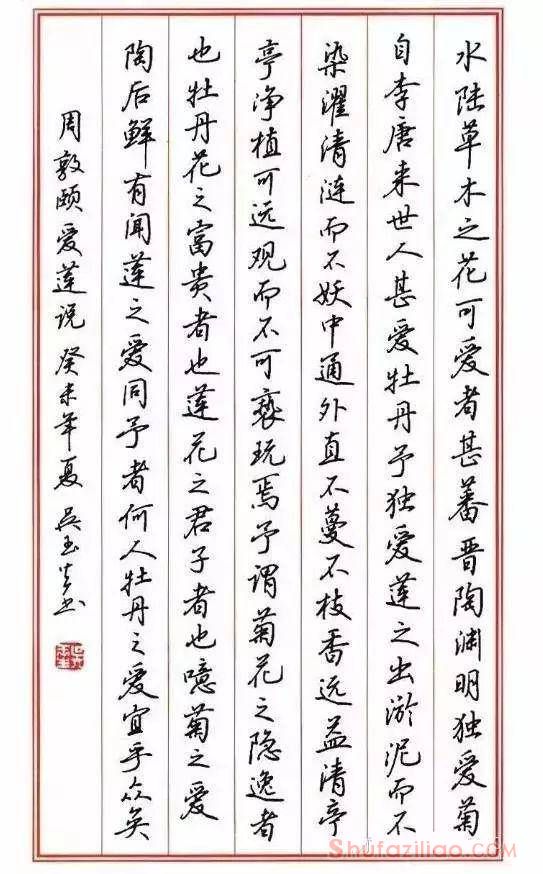 水陆草木之花可爱者甚蕃晋陶渊明独爱菊
自李唐来世人甚爱牡丹予独爱莲之出淤泥而不
染濯清涟而不妖中通外直不蔓不枝香远益清亭
亭净植可远观而不可亵玩焉予谓菊花之隐逸者
也牡丹花之富贵者也莲花之君子者也噫菊之爱
陶后鲜有闻莲之爱同予者何人牡丹之爱宜乎众矣
周敦颐爱莲说癸未年夏吴玉生书
Shufaziliao.com